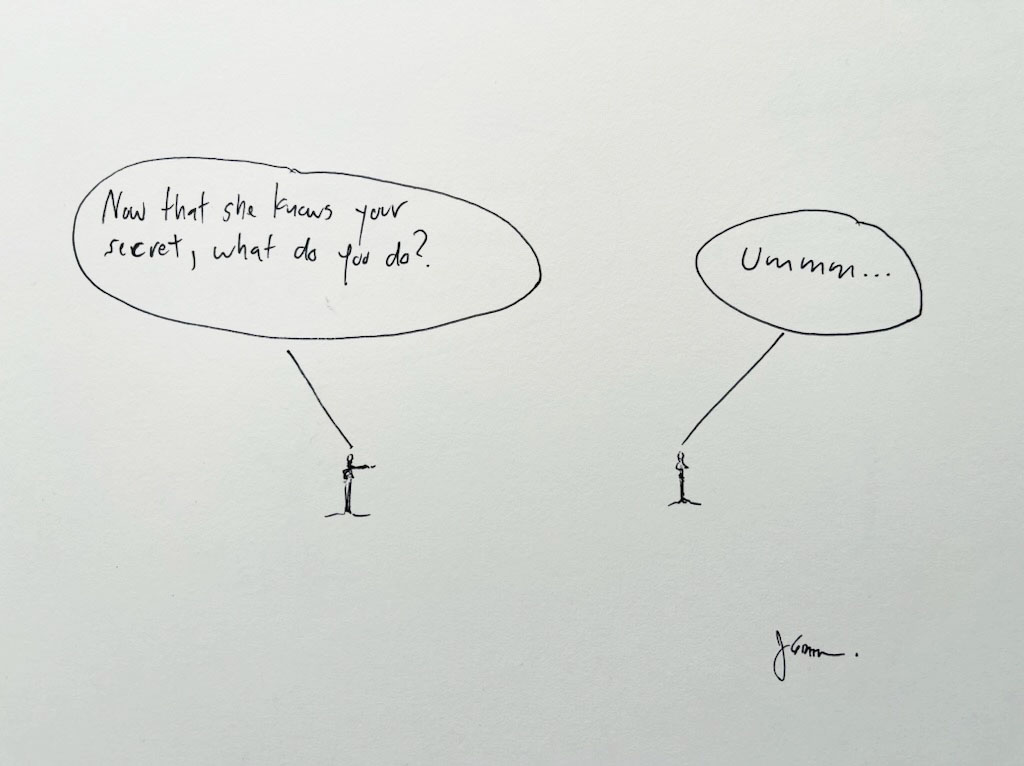 Now that she knows your
secret, what do you do?
Ummm...